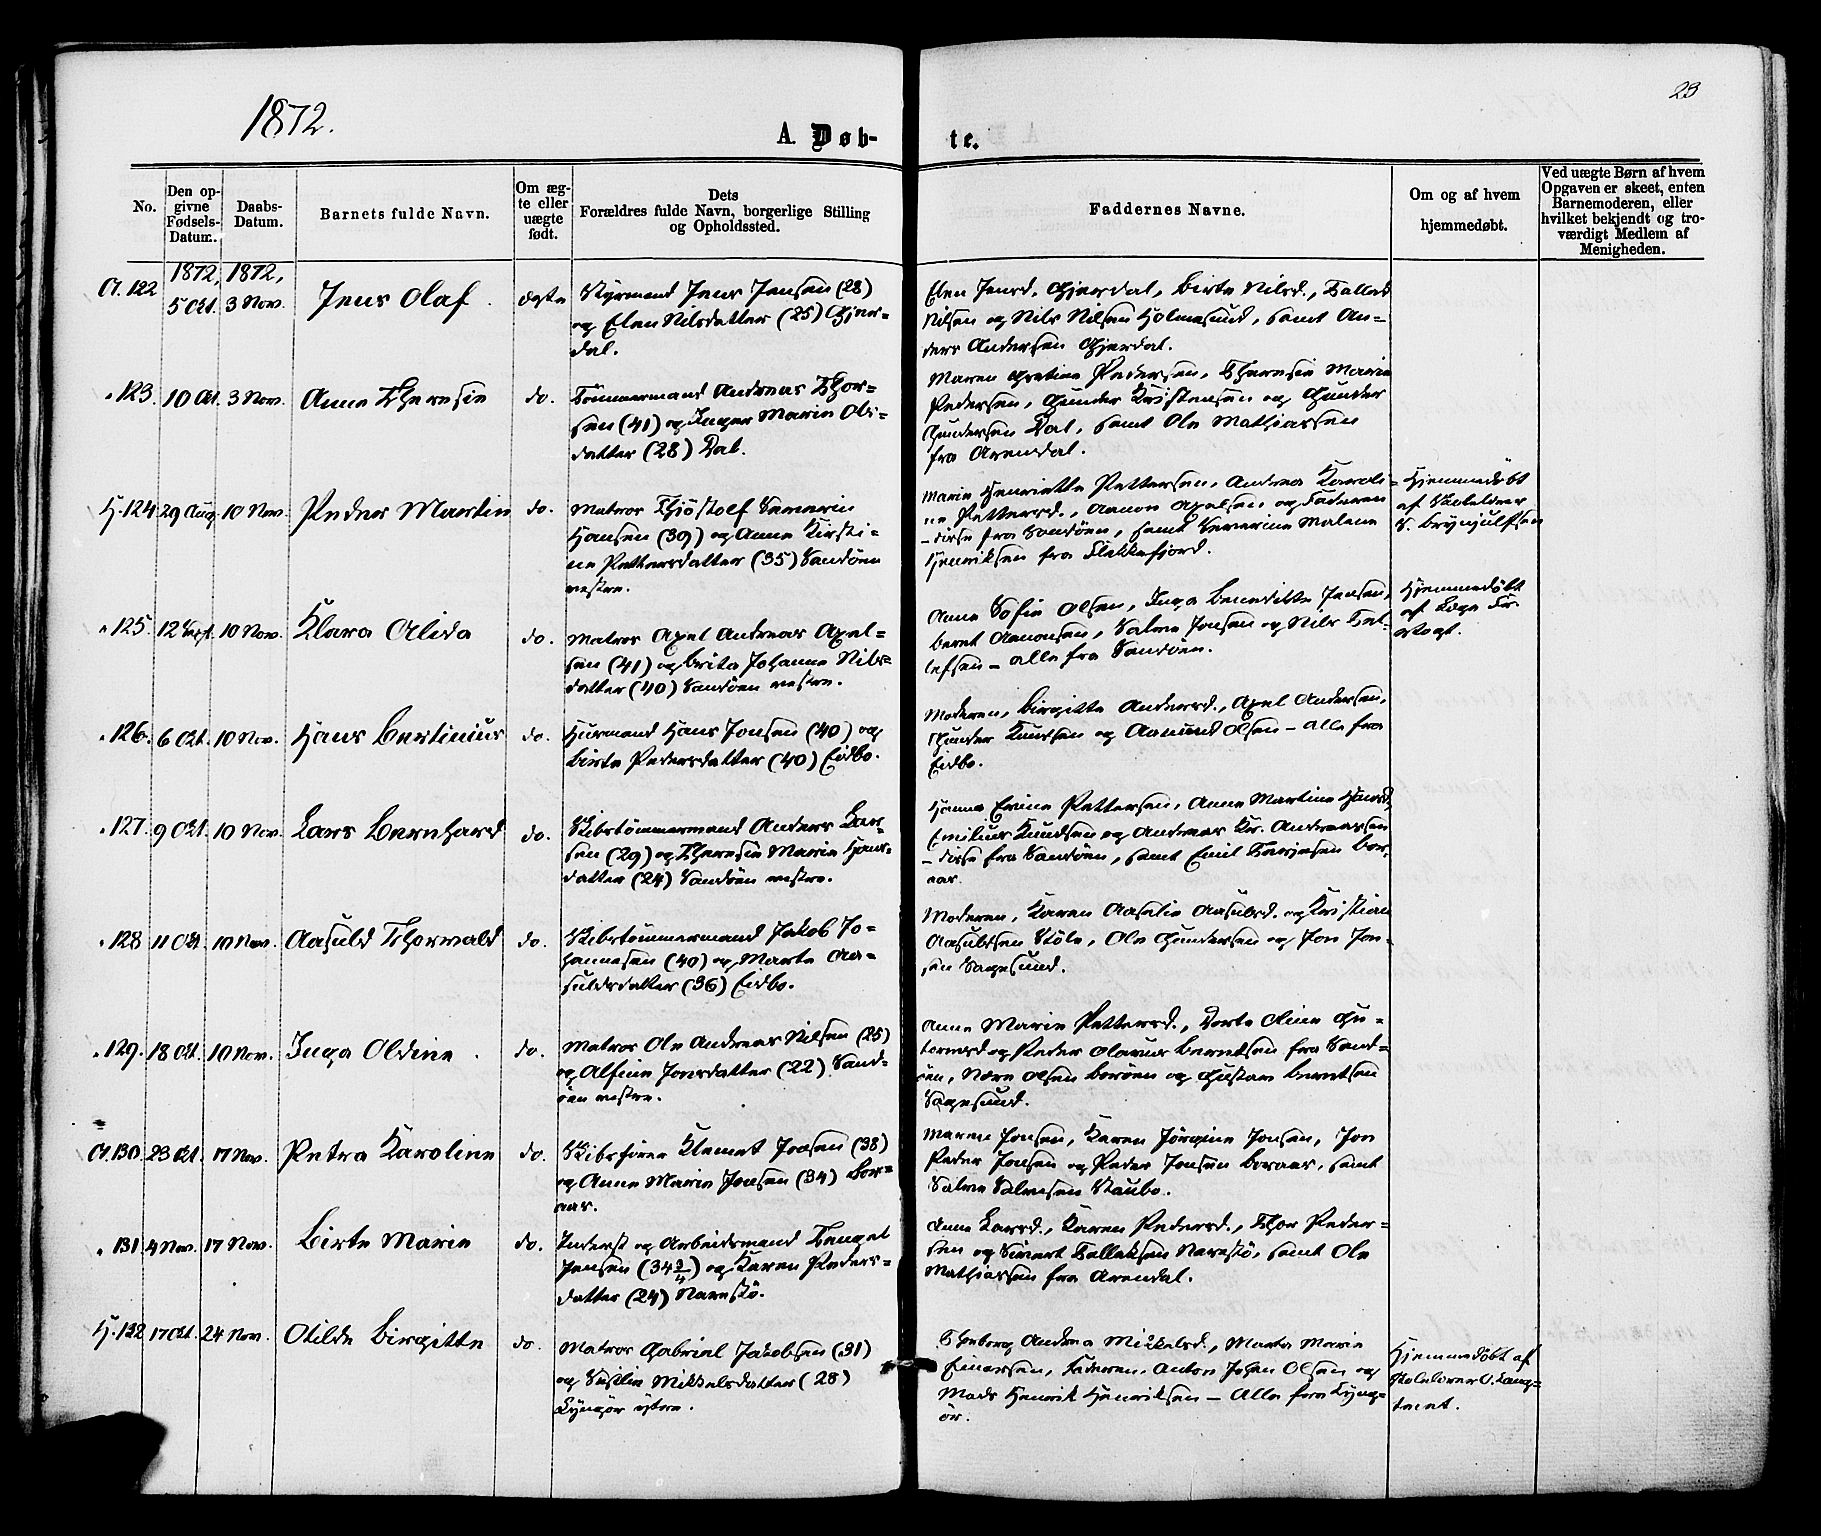 1872.
23
A. Døb-
te.
No.
Den op-
givne
Fødsels-
Datum.
Daabs-
Datum.
Barnets fulde Navn.
Om æg-
te eller
uægte
født.
Dets
Forældres fulde Navn, borgerlige Stilling
og Opholdssted.
Faddernes Navne.
Om og af hvem
hjemmedøbt.
Ved uægte Børn af hvem
Opgaven er skeet, enten
Barnemoderen, eller
hvilket bekjendt og tro-
værdigt Medlem af
Menigheden.
1872, 1872,
122 5 Okt. 3 Nov. Jens Olaf ægte Styrmand Jens Jensen (28)
og Elen Nilsdatter (25) Gjer-
dal.
Elen Jensd. Gjerdal, Birte Nilsd., Tallak
Nilsen og Nils Nilsen Holmesund, samt An-
ders Andersen Gjerdal.
123. 10 Okt. 3 Nov. Anne Theresie do. Tømmermand Andreas Thor-
sen (41) og Inger Marie Ols-
datter (28) Dal.
Maren Gretine Pedersen, Theresie Marie
Pedersen, Gunder Kristensen og Gunder
Gundersen Dal, samt Ole Mathiassen
fra Arendal.
H. 124 29 Aug 10 Nov. Peder Martin do. Matros Thjøstolf Severin
Hansen (39) og Anne Kirsti-
ne Pettersdatter (35) Sandøen
vestre.
Marie Henriette Pettersen, Andrea Karoli-
ne Pettersd., Aanon Axelsen og Faderen
- disse fra Sandøen, samt Severine Malene
Henriksen fra Flekkefjord.
Hjemmedøbt
af Skolelærer
S. Brynjulfsen
125. 12 Sept. 10 Nov. Klara Alida do. Matros Axel Andreas Axel-
sen (41) og Brita Johanne Nils-
datter (40) Sandøen vestre.
Anne Sofie Olsen, Inga Benedikte Jensen,
Beret Aanonsen, Salve Jensen og Nils Tal-
lefsen - alle fra Sandøen.
Hjemmedøbt
af Læge Fr.
Vogt.
126. 6 Okt. 10 Nov. Hans Bertinius do. Husmand Hans Jonsen (40) og
Birte Pedersdatter (40) Eidbo.
Moderen, Birgitte Andersd., Axel Andersen,
Gunder Knudsen og Aamund Olsen - alle fra
Eidbo.
127. 9 Okt. 10 Nov. Lars Bernhard do. Skibstømmermand Anders Lar-
sen (29) og Theresie Marie Hans-
datter (24) Sandøen vestre.
Hanna Erine Pettersen, Anne Martine Hansd.
Emilius Knudsen og Andreas Kr. Andreassen
- disse fra Sandøen, samt Emil Terjesen Bor-
aas.
128 11 Okt 10 Nov. Aasuld Thorvald do. Skibstømmermand Jakob Jo-
hannesen (40) og Marte Aa-
suldsdatter (36) Eidbo.
Moderen, Karen Aasalie Aasulsd. og Kristian
Aasulsen Støle, Ole Gundersen og Jon Jon-
sen Sagesund.
129. 18 Okt. 10 Nov. Inga Oldine do. Matros Ole Andreas Nilsen (25)
og Alfine Jonsdatter (22) Sand-
øen vestre.
Anne Marie Pettersd., Dorte Oline Gu-
tormsd og Peder Olavus Berntsen fra Sand-
øen, Nære Olsen Borøen og Gustav Berntsen
Sagesund.
130. 23 Okt. 17 Nov. Petra Karoline do. Skibsfører Klemet Joasen (38)
og Anne Marie Joasen (34) Bor-
aas.
Maren Jonsen, Karen Jørgine Jonsen, Jon
Peder Jonsen og Peder Jonsen Boraas, samt
Salve Salvesen Staubo.
131 4 Nov. 17 Nov. Birte Marie do. Inderst og Arbeidsmand Tengel
Jensen (34 3/4) og Karen Peders-
datter (24) Narestø.
Anne Larsd., Karen Pedersd., Thor Peder-
sen og Sivert Tallaksen Narestø, samt Ole
Mathiassen fra Arendal.
H. 132 17 Okt. 24 Nov. Otilde Birgitte do. Matros Gabriel Jakobsen (31)
og Sesilie Mikkelsdatter (28)
Lyngør ytre.
Theborg Andrea Mikkelsd., Marta Marie
Einersen, Faderen, Anton Johan Olsen og
Mads Henrik Henriksen - Alle fra Lyng-
ør.
Hjemmedøbt af
Skolelærer O. Lang-
tvet.